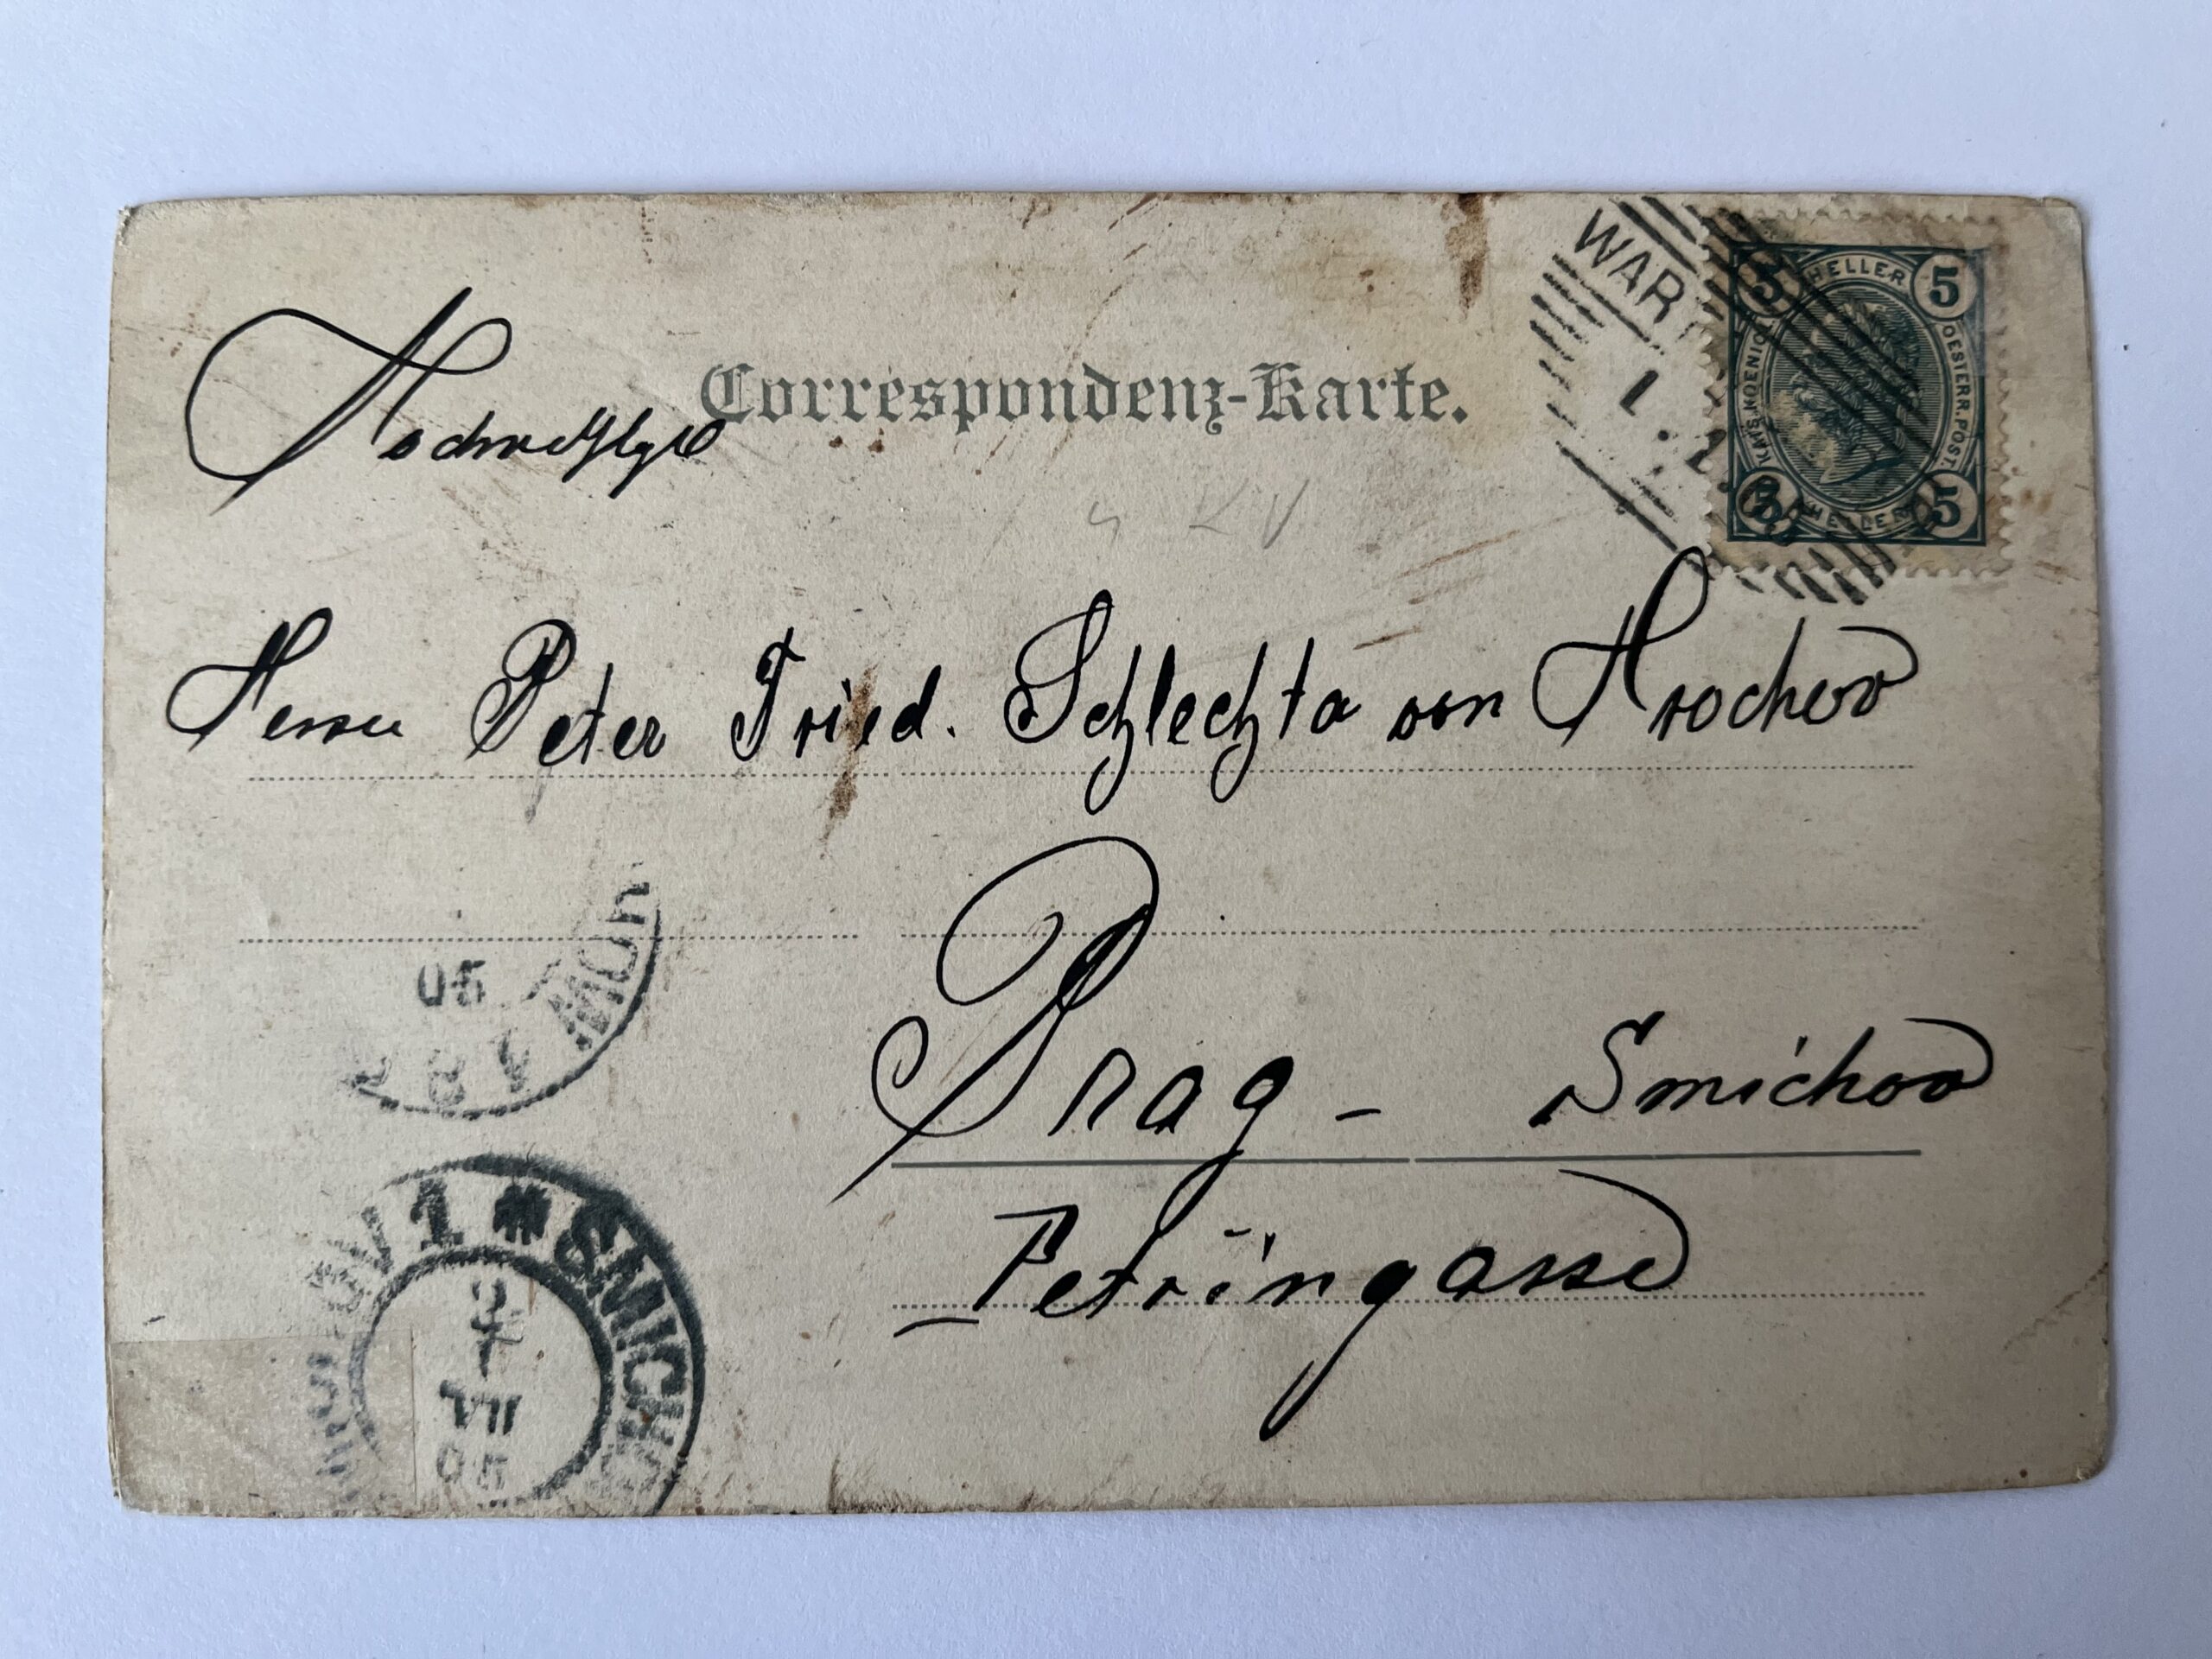 Correspondenz-Karte.
WAR
5 HELLER 5
KAIS. KOENIGL. OESTERR. POST.
5 HELLER 5
Herrn Peter Fried. Schlechta von Hrochov
05
Prag - Smichov
Petřingasse
1 * SMICHO
VII
05